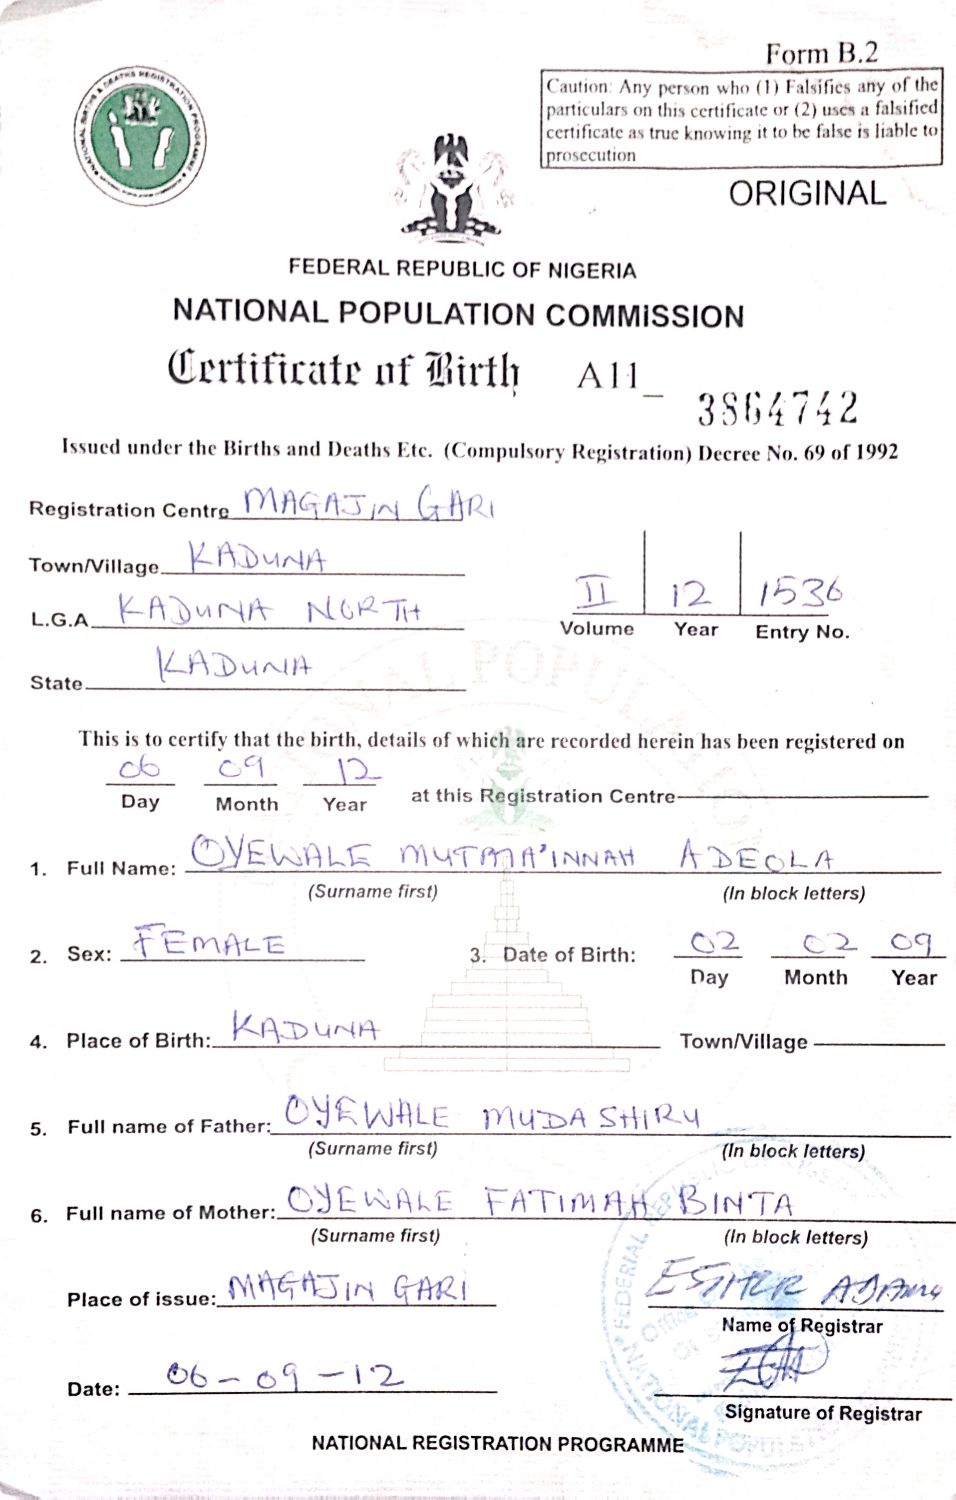 Form B.2
Caution: Any person who (1) Falsifies any of the
particulars on this certificate or (2) uses a falsified
certificate as true knowing it to be false is liable to
prosecution
NATIONAL BIRTHS & DEATHS REGISTRATION PROGRAMME
ORIGINAL
FEDERAL REPUBLIC OF NIGERIA
NATIONAL POPULATION COMMISSION
Certificate of Birth A11_ 3864742
Issued under the Births and Deaths Etc. (Compulsory Registration) Decree No. 69 of 1992
Registration Centre MAGAJIN GARI
Town/Village KADUNA
L.G.A KADUNA NORTH
State KADUNA
II 12 1536
Volume Year Entry No.
This is to certify that the birth, details of which are recorded herein has been registered on
06 09 12
Day Month Year at this Registration Centre
1. Full Name: OYEWALE ADEOLA
(Surname first) (In block letters)
2. Sex: FEMALE 3. Date of Birth: 02 02 09
Day Month Year
4. Place of Birth: KADUNA Town/Village
5. Full name of Father: OYEWALE MUDASHIRU
(Surname first) (In block letters)
6. Full name of Mother: OYEWALE FATIMAH BINTA
(Surname first) (In block letters)
Place of issue: MAGAJIN GARI ESTHER
Name of Registrar
Date: 06-09-12
Signature of Registrar
NATIONAL REGISTRATION PROGRAMME